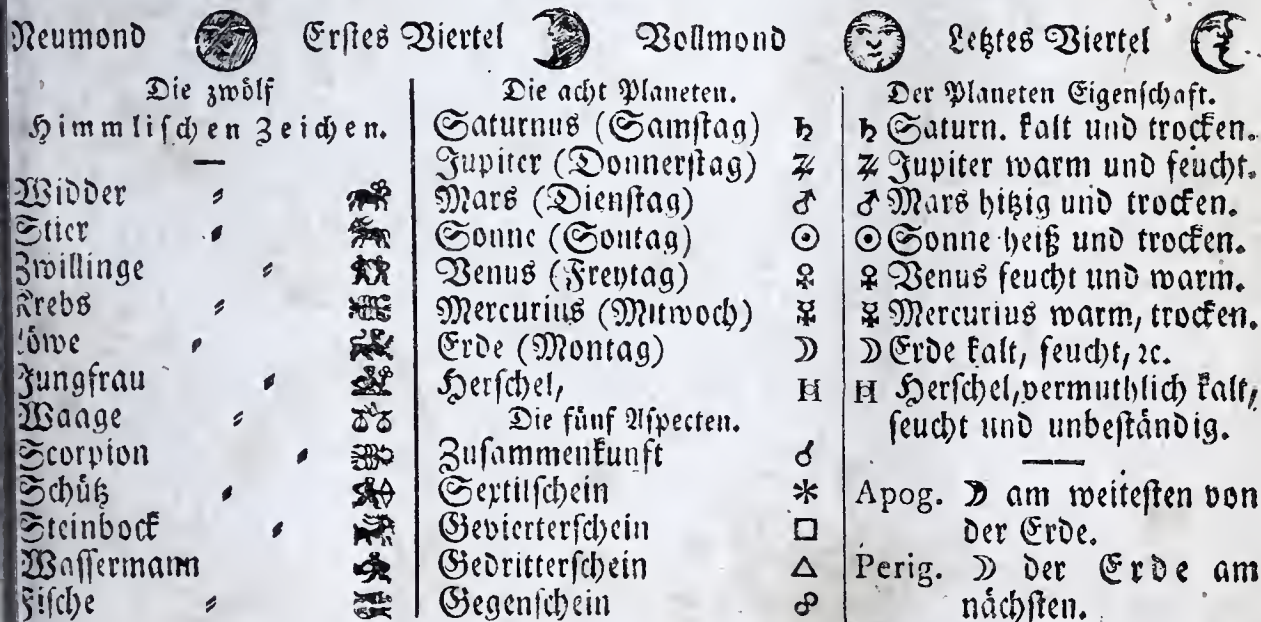 Neumond Erstes Viertel Vollmond Letztes Viertel
Die zwölf
Himmlischen Zeichen.
Widder
Stier
Zwillinge
Krebs
Löwe
Jungfrau
Waage
Scorpion
Schütz
Steinbock
Wassermann
Fische
Die acht Planeten.
Saturnus (Samstag) ♄
Jupiter (Donnerstag) ♃
Mars (Dienstag) ♂
Sonne (Sontag) ☉
Venus (Freytag) ♀
Mercurius (Mitwoch) ☿
Erde (Montag) ☽
Herschel, H
Die fünf Aspecten.
Zusammenkunft ☌
Sextilschein ⚹
Gevierterschein □
Gedritterschein △
Gegenschein ☍
Der Planeten Eigenschaft.
♄ Saturn. kalt und trocken.
♃ Jupiter warm und feucht.
♂ Mars hitzig und trocken.
☉ Sonne heiß und trocken.
♀ Venus feucht und warm.
☿ Mercurius warm, trocken.
☽ Erde kalt, feucht, ꝛc.
H Herschel, vermuthlich kalt,
feucht und unbeständig.
Apog. ☽ am weitesten von
der Erde.
Perig. ☽ der Erde am
nächsten.